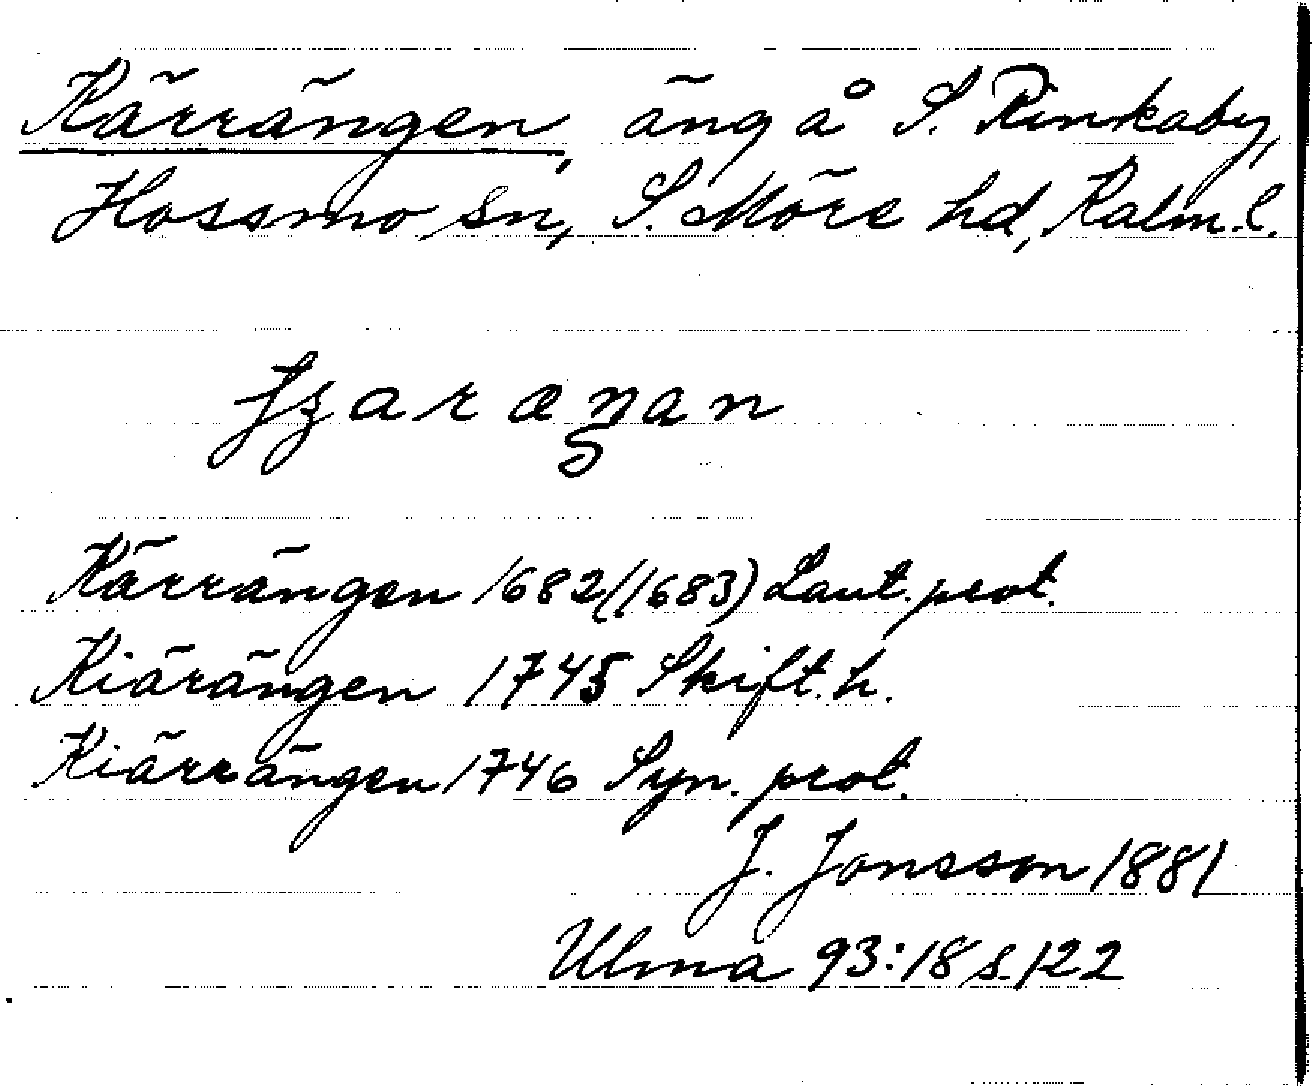 Kärrängen, äng å S. Rinkaby,
Hossmo sn, S. Möre hd, Kalm. l.
Kärrängen 1682 (1683) Lant. prot.
Kiärängen 1745 Skift. h.
Kiärrängen 1746 Syn. prot.
J. Jonsson 1881
Ulma 93:18 s. 122